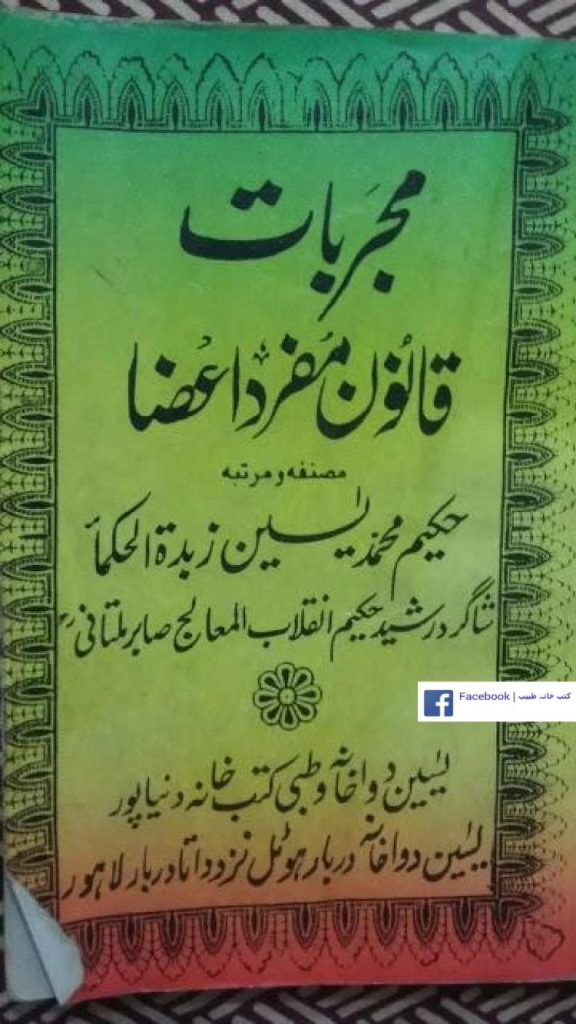 مجربات
قانون مفرد اعضا
مصنفہ و مرتبہ
حکیم محمد یٰسین زبدۃ الحکمأ
شاگرد رشید حکیم انقلاب المعالج صابر ملتانیؒ
Facebook | کتب خانہ طبیب
یٰسین دواخانہ وطبی کتب خانہ دنیاپور
یٰسین دواخانہ دربار ہوٹل نزد داتا دربار لاہور